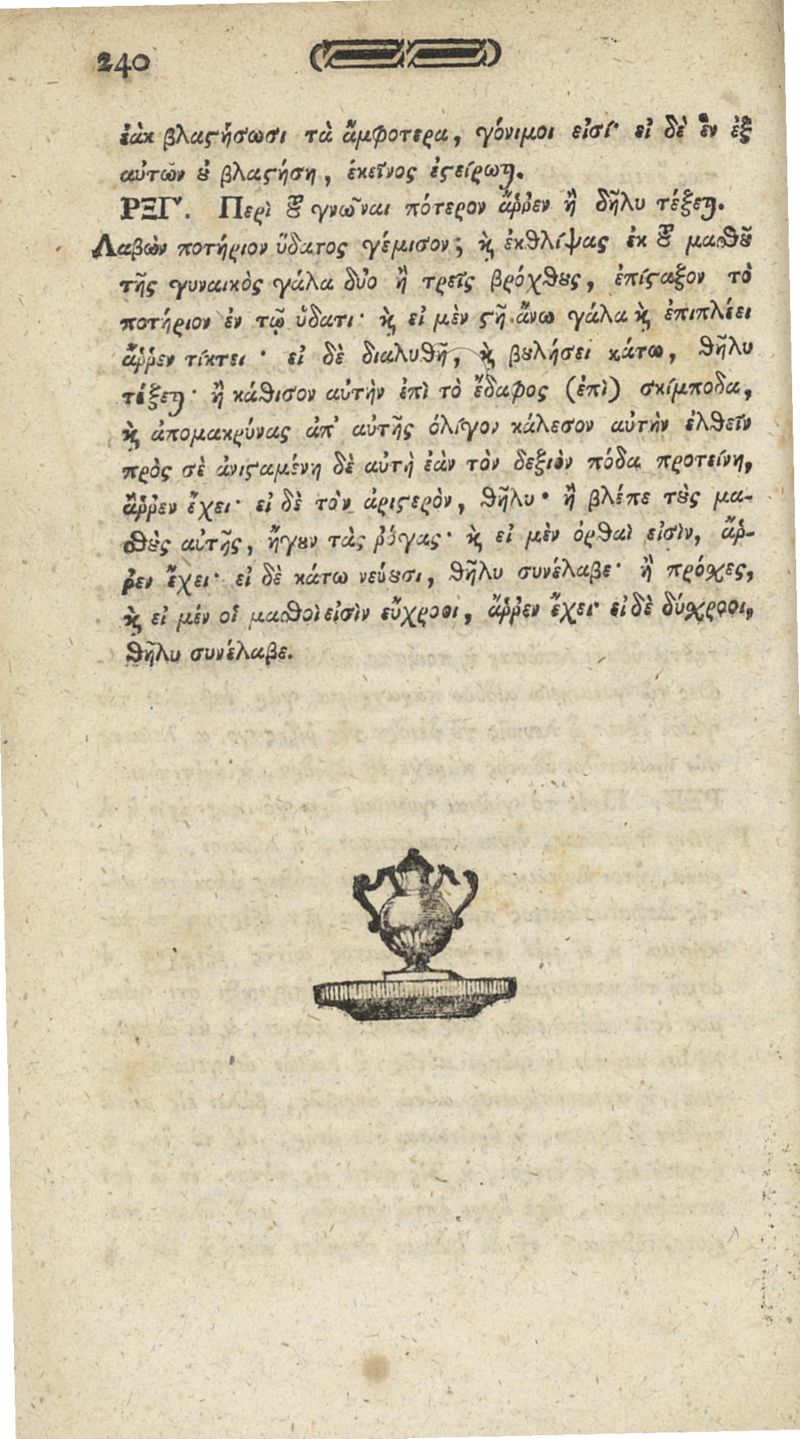 240
ἐὰκ βλαϛήσωσι τὰ ἄμφοτερα, γόνιμοι εἰσί· εἰ δὲ ἓν ἐξ
αὐτῶν ȣ̓ βλαϛήση, ἐκεῖνος ἐϛείρωτ(αι).
ΡΞΓʹ. Περὶ τȣ͂ γνῶναι πότερον ἄῤῥεν ἢ δῆλυ τέξετ(αι).
Λαβὼν ποτήριον ὕδατος γέμισον; ϗ̀ ἐκθλίψας ἐκ τȣ͂ μαϑȣ͂
τῆς γυναικὸς γάλα δύο ἢ τρεῖς βρόχθȣς, ἐπίϛαξον τὸ
ποτήριον ἐν τῷ ὕδατι· ϗ̀ εἰ μὲν ϛῆ ἄνω γάλα ϗ̀ ἐπιπλέει
ἄῤῥεν τίκτει · εἰ δὲ διαλυθῆ, ϗ̀ βȣλήσει κάτω, ϑῆλυ
τέξετ(αι)· ἢ κάϑισον αὐτὴν ἐπὶ τὸ ἔδαφος (ἐπὶ) σκίμποδα,
ϗ̀ ἀπομακρύνας ἀπ' αὐτῆς ὀλίγον κάλεσον αὐτὴν ἐλθεῖν
πρὸς σὲ ἀνιϛαμένη δὲ αὐτὴ ἐὰν τὸν δεξιὸν πόδα προτείνη,
ἄῤῥεν ἔχει· εἰ δὲ τὸν ἀριϛερὸν, ϑῆλυ· ἢ βλέπε τȣ̀ς μα-
ϑȣ̀ς αὐτῆς, ἤγȣν τὰς ῥόγας· ϗ̀ εἰ μὲν ὀρθαὶ εἰσὶν, ἄῤ-
ῥεν ἔχει· εἰ δὲ κάτω νεύȣσι, ϑῆλυ συνέλαβε· ἢ πρόχες,
ϗ̀ εἰ μέν οἱ μαϑοὶ εἰσὶν εὔχροοι, ἄῤῥεν ἔχει· εἰ δὲ δύχροοι,
ϑῆλυ συνέλαβε.